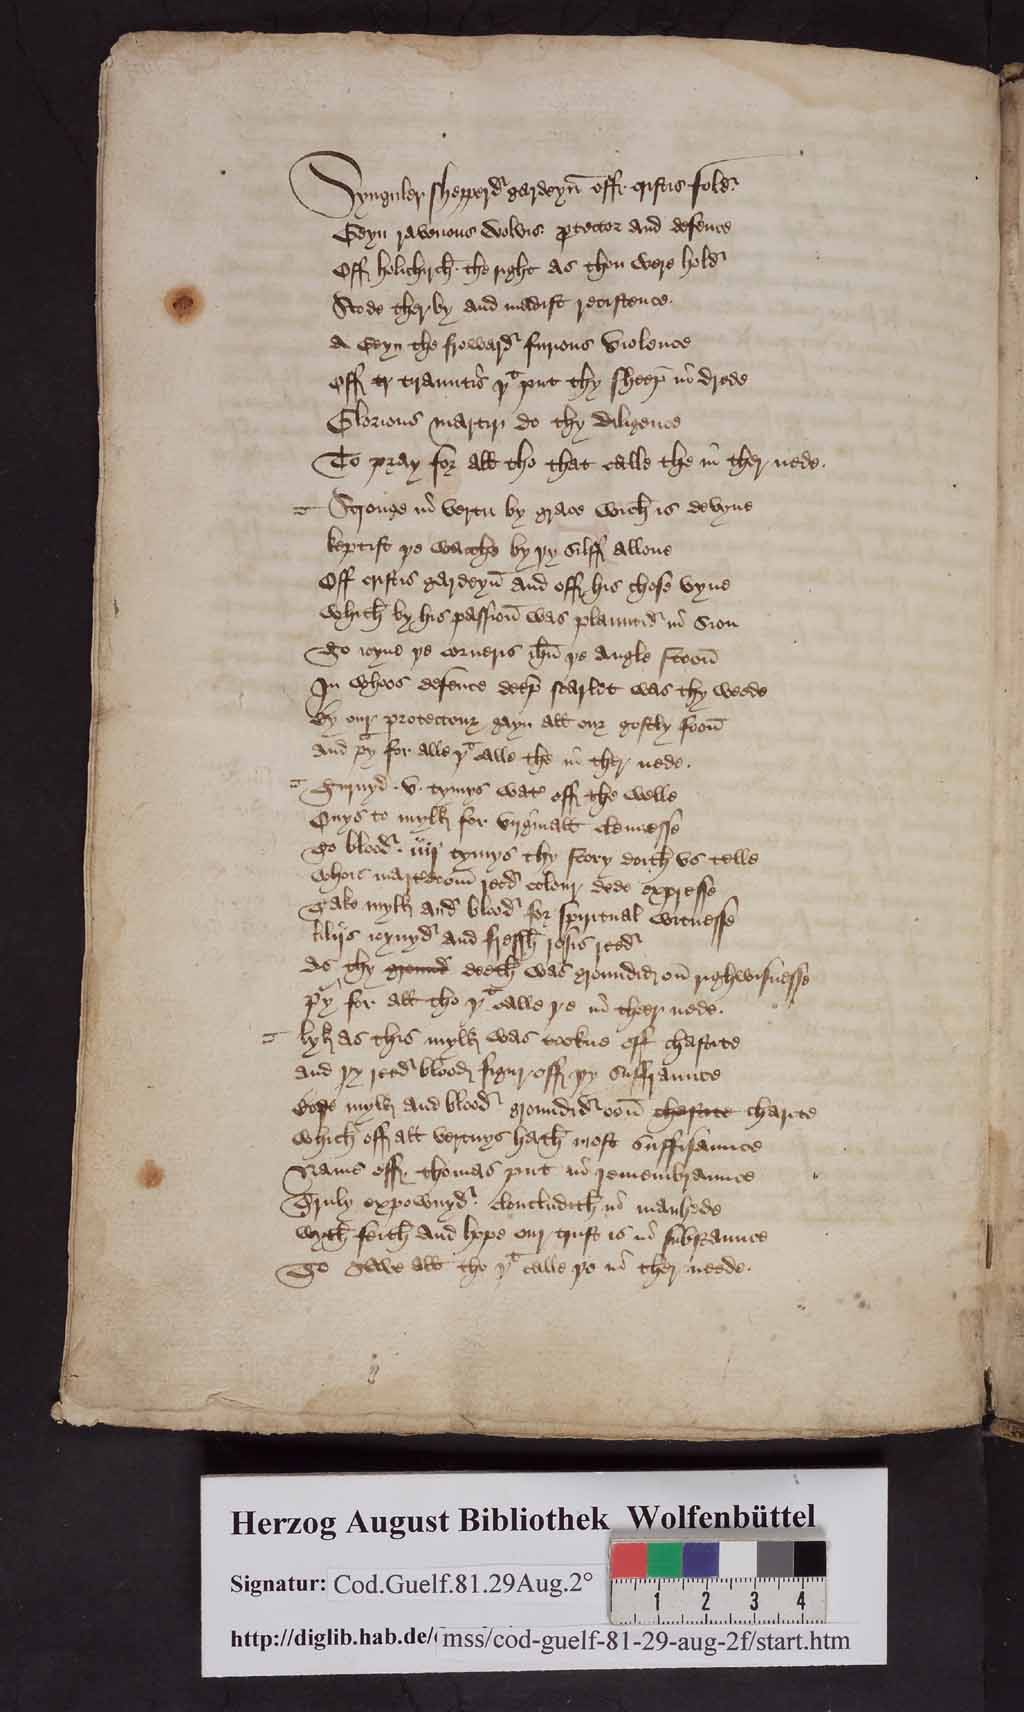 Synguler shepperd gardeyn off cristis fold
Geyn ravenous wolvis protector and defence
Off holichirch the right as thou were hold
Stode therby and madist recistence
A Geyn the froward furious violence
Off tr tirauntis þt put thy sheep in drede
Glorious martir do thy diligence
To pray for all tho that calle the in ther nede
Stronge in vertu by grace wich is devyne
keptist þe wacche by þy silff allone
Off cristis gardeyn and off his chose vyne
which by his passioun was plauntid in Sion
To ioyne þe corneris ihu þe angle stoon
In whoos defence deep scarlet was thy weede
By our protectour gayn all our gostly foon
And pray for alle þt calle the in ther nede
Turnyd .v. tymys watr off the welle
Onys to mylk for virginall clennesse
To blood . iiij tymys thy story doith us telle
whois marterdom reed colour dede expresse
Take mylk and blood for spiritual witnesse
lilijs ioynyd and fressh rosis reed
As thy ground deeth was groundid on rightwisnesse
pray for all tho þt calle þe in theer nede
lyk as this mylk was tookne off chastite
And þy reed blood figur off þy suffraunce
Bothe mylk and blood groundid oon chastite charite
which off all vertuys hath most suffisaunce
Name off Thomas put in remembraunce
Truly expownyd concludith in manhede
with feith and hope our trust is in substaunce
To save all tho þt calle þe in ther neede
Herzog August Bibliothek Wolfenbüttel
Signatur: Cod.Guelf.81.29Aug.2°
1 2 3 4
http://diglib.hab.de/ mss/cod-guelf-81-29-aug-2f/start.htm